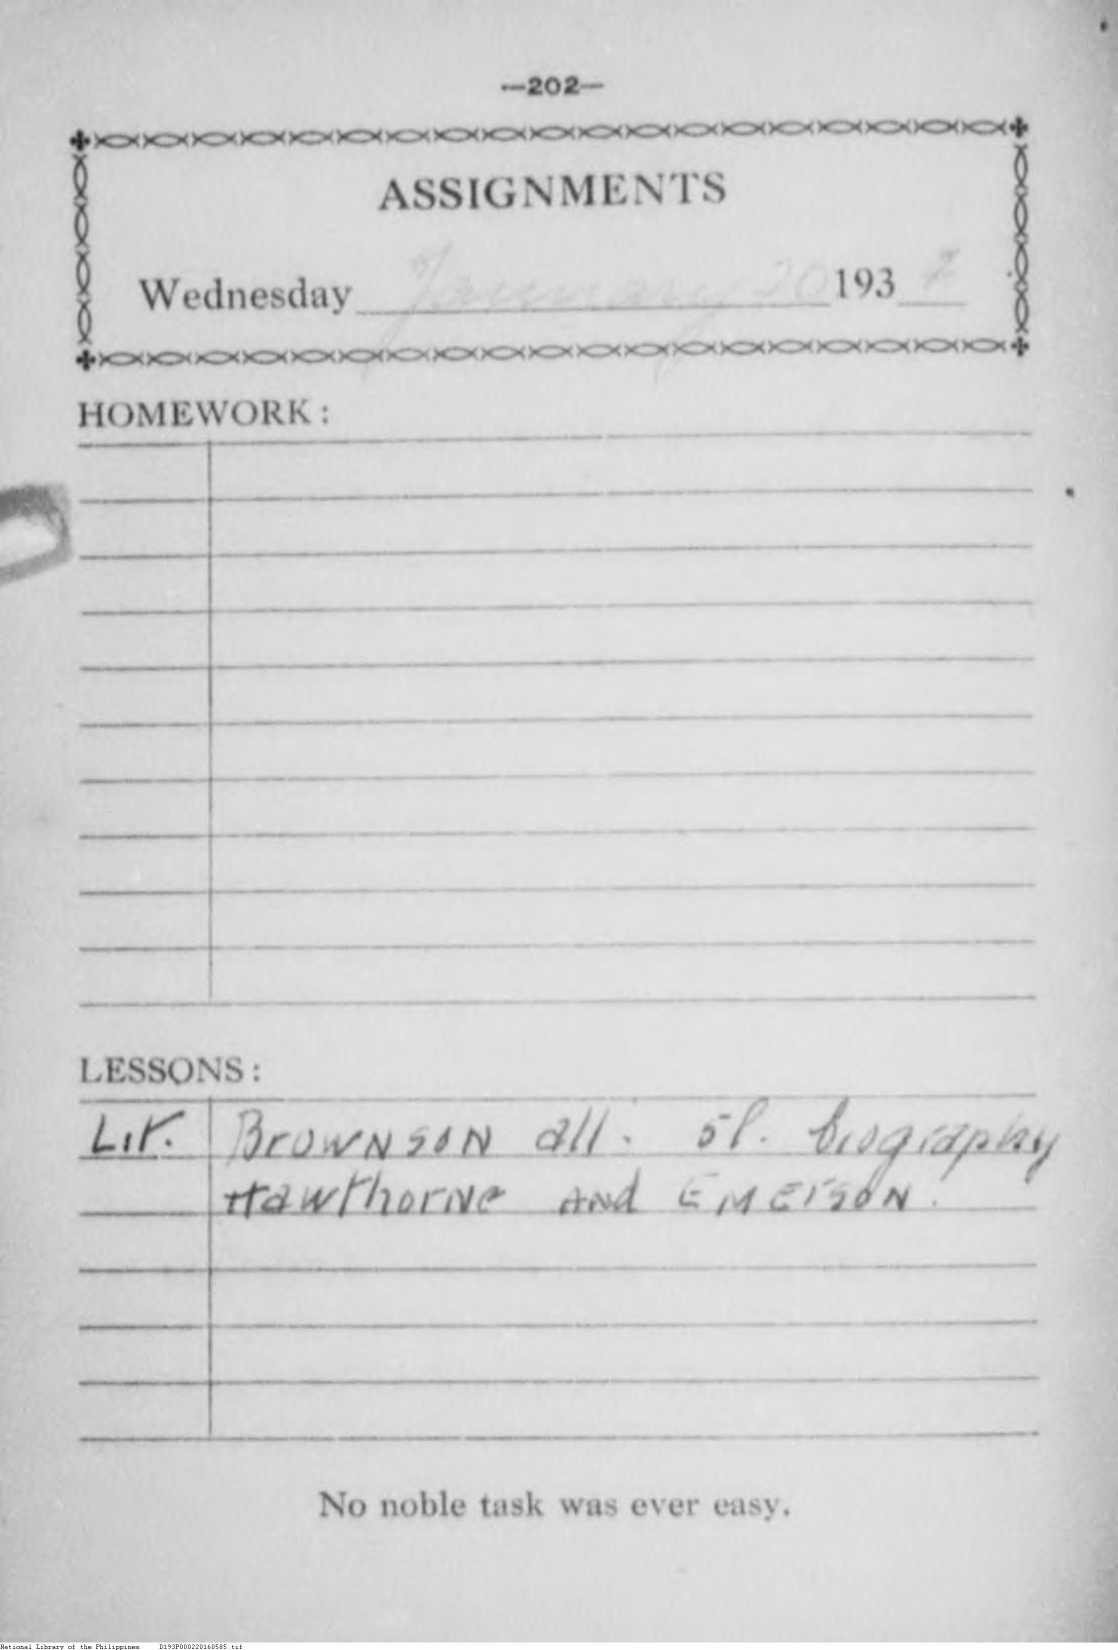 —202—
ASSIGNMENTS
Wednesday January 20 1932
HOMEWORK:
LESSONS:
Lit. Brownson all. sp. biography
Hawthorne and Emerson.
No noble task was ever easy.
National Library of the Philippines D193P000220160585.tif